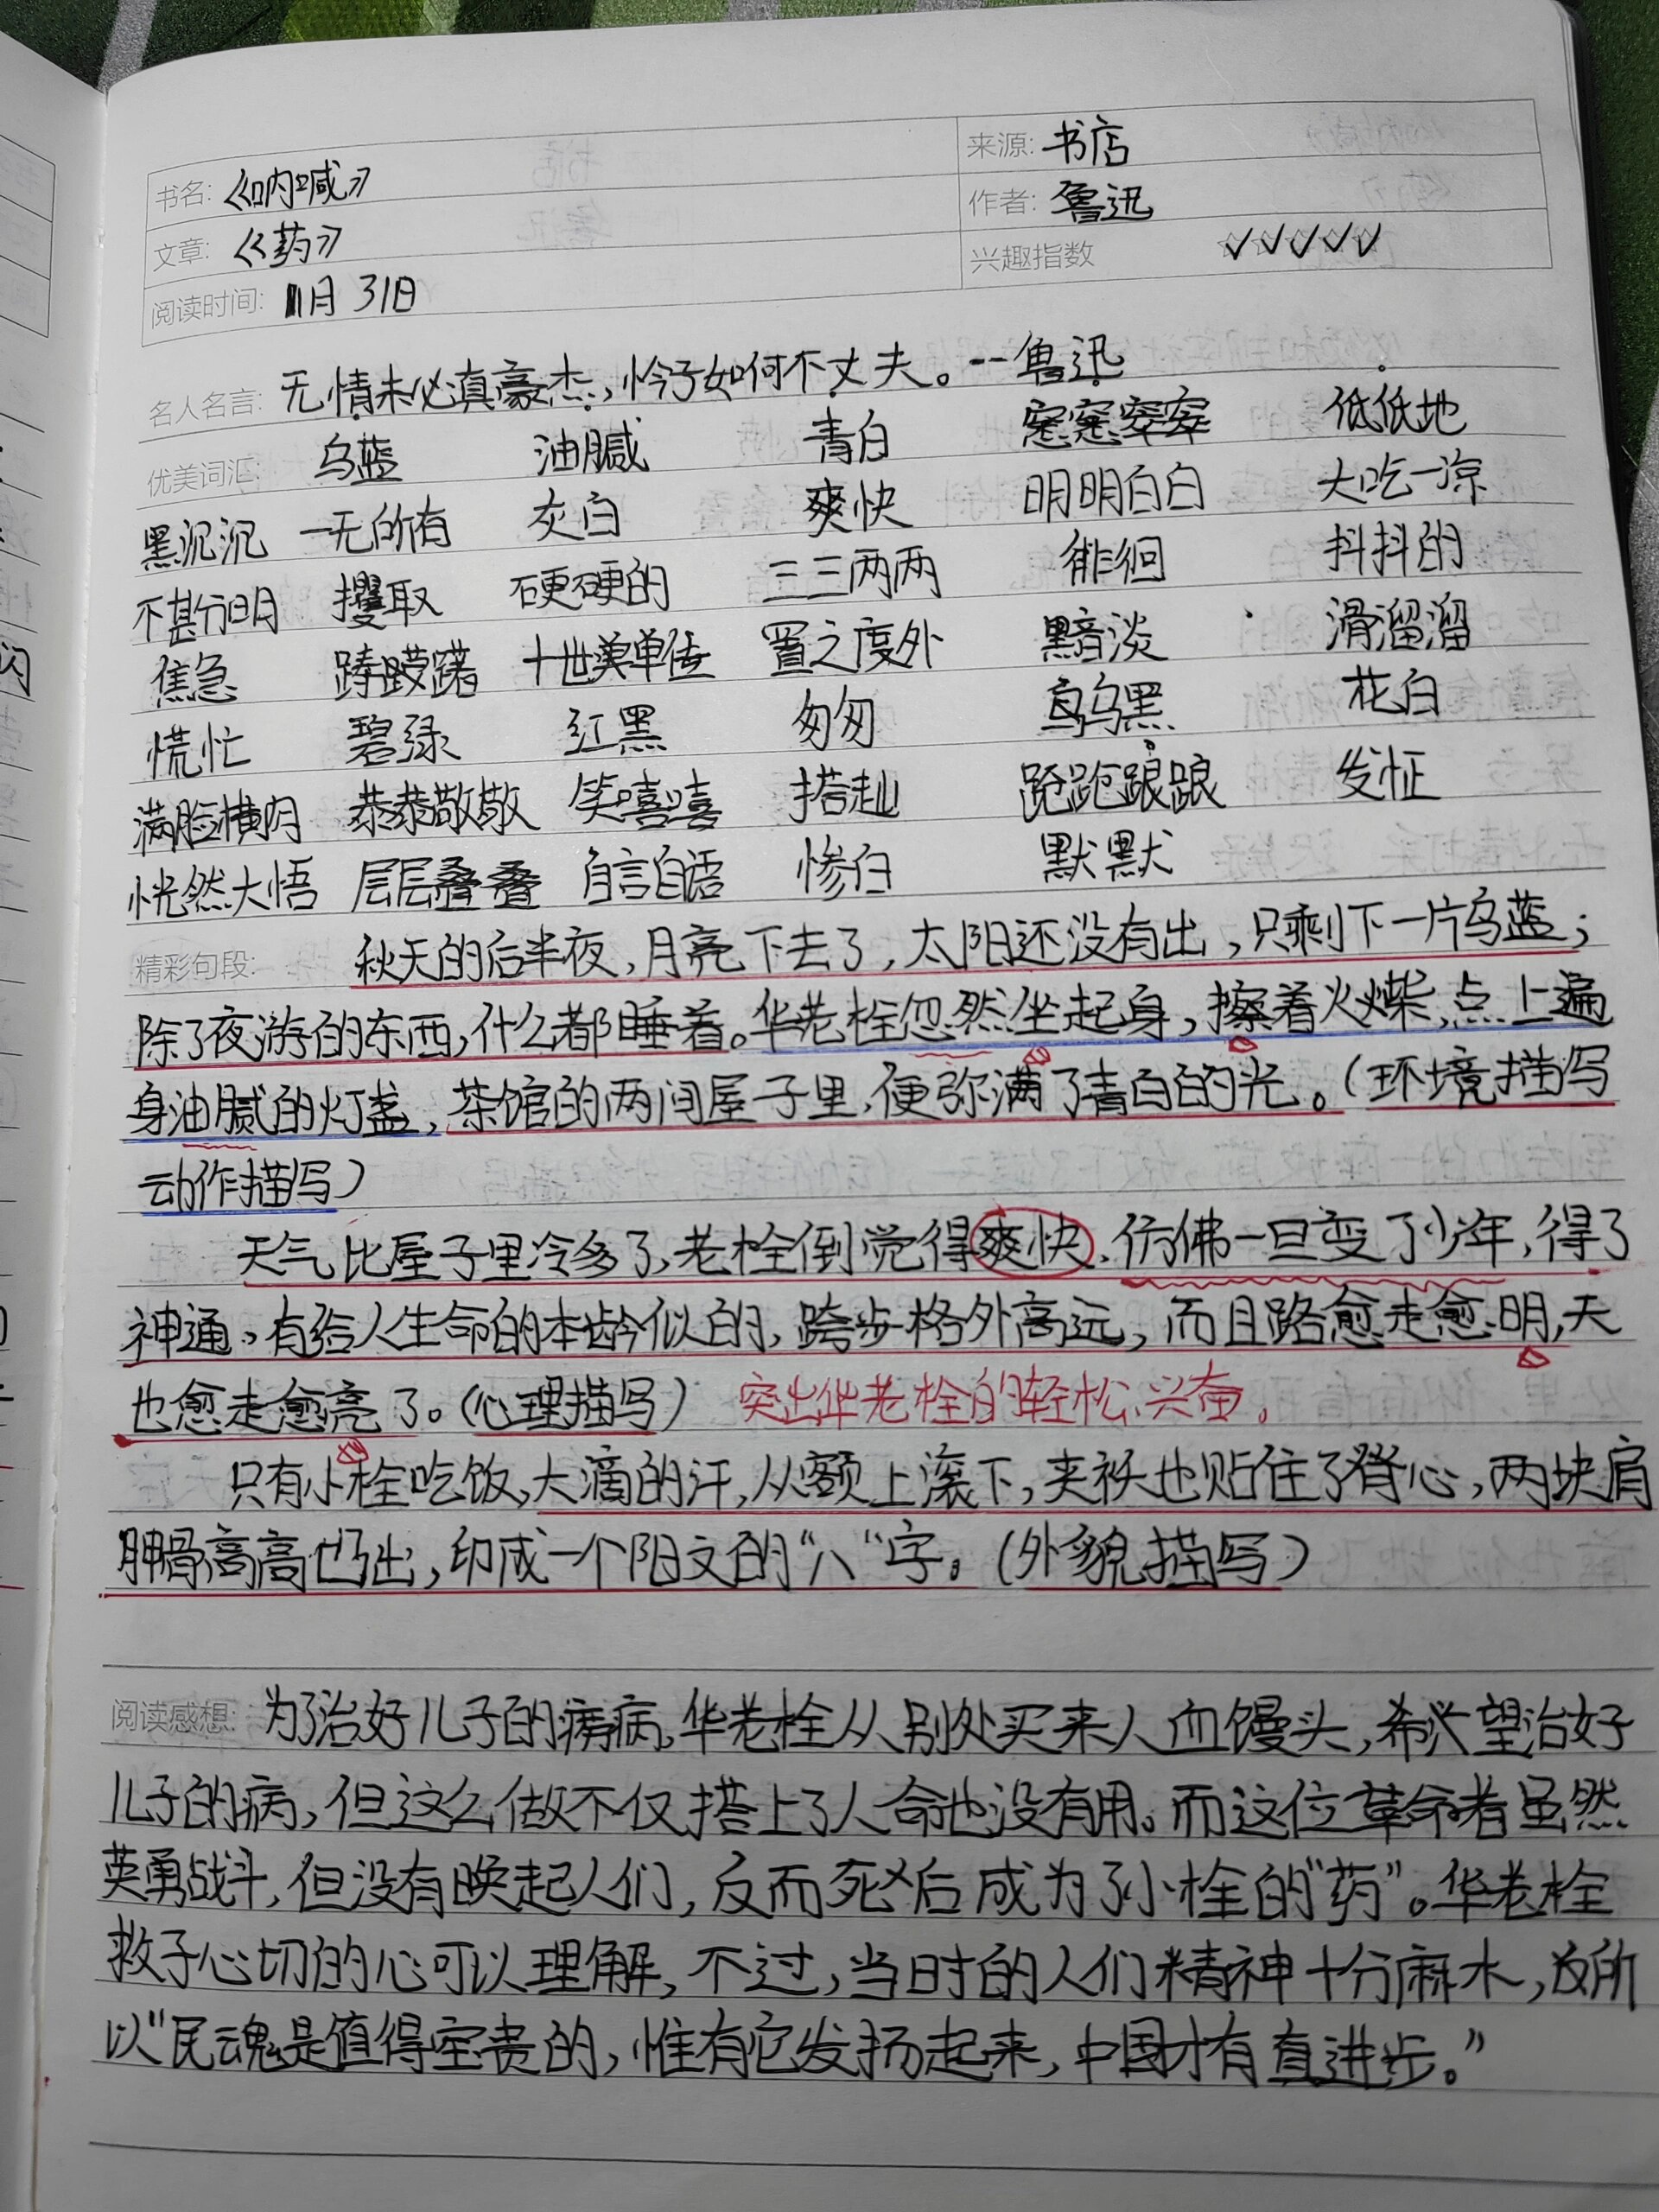 书名: 《呐喊》 来源: 书店
作者: 鲁迅
文章: 《药》 兴趣指数
阅读时间: 11月31日
名人名言: 无情未必真豪杰,怜子如何不丈夫。--鲁迅
优美词汇: 乌蓝 油腻 青白 窸窸窣窣 低低地
黑沉沉 一无所有 灰白 爽快 明明白白 大吃一凉
不甚分明 攫取 硬硬的 三三两两 徘徊 抖抖的
焦急 踌躇 十世单传 置之度外 黯淡 滑溜溜
慌忙 碧绿 红黑 匆匆 乌黑 花白
满脸横肉 恭恭敬敬 笑嘻嘻 搭赸 跄跄踉踉 发怔
恍然大悟 层层叠叠 自言自语 惨白 默默
精彩句段: 秋天的后半夜,月亮下去了,太阳还没有出,只剩下一片乌蓝;
除了夜游的东西,什么都睡着。华老栓忽然坐起身,擦着火柴,点上遍
身油腻的灯盏,茶馆的两间屋子里,便弥满了青白的光。(环境描写
动作描写)
天气比屋子里冷多了,老栓倒觉得爽快,仿佛一旦变了少年,得了
神通,有给人生命的本龄似的,跨步格外高远,而且路愈走愈明,天
也愈走愈亮了。(心理描写) 突出华老栓的轻松、兴奋。
只有小栓吃饭,大滴的汗,从额上滚下,夹袄也贴住了脊心,两块肩
胛骨高高凸出,印成一个阳文的“八“字。(外貌描写)
阅读感想: 为了治好儿子的痨病,华老栓从别处买来人血馒头,希望治好
儿子的病,但这么做不仅搭上了人命也没有用。而这位革命者虽然
英勇战斗,但没有唤起人们,反而死后成为了小栓的“药”。华老栓
救子心切的心可以理解,不过,当时的人们精神十分麻木,所
以“民魂是值得宝贵的,惟有它发扬起来,中国才有真进步。”